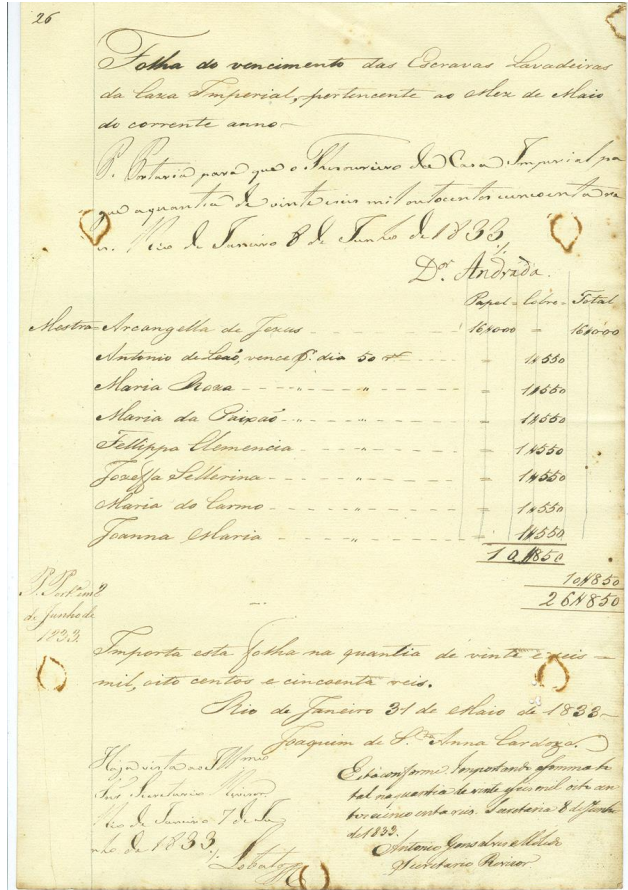 26
Folha do vencimento das Escravas Lavadeiras
da Caza Imperial, pertencente ao Mez de Maio
do corrente anno
P. Portaria para que o Thesoureiro da Casa Imperial pa
gue a quantia de vinte seis mil outocentos cincoenta
Rio de Janeiro 8 de Junho de 1833
D.or Andrada.
Papel = Cobre = Total
Mestra = Arcangella de Jezus 16#000 = 16#000
Antonio de Leaõ, vence p. dia 50 rs = 1#550
Maria Roza " = 1#550
Maria da Paixaõ " = 1#550
Fellippa Clemencia " = 1#550
Jozeffa Sellerina " = 1#550
Maria do Carmo " = 1#550
Joanna Maria " 1#550
10#850
10#850
26#850
P. Port.a em 2
de Junho de
1833.
Importa esta folha na quantia de vinte e seis
mil, oito centos e cincoenta reis.
Rio de Janeiro 31 de Maio de 1833
Joaquim de S.ta Anna Cardozo.
Haja vista ao Illmo
Snr Secretario
Rio de Janeiro 7 de Ju
nho de 1833
Lobato
Está conforme. Importando a somma to
tal na quantia de vinte e seis mil oito cen
tos cincoenta reis. Secretaria 8 de Junho
de 1833.
Antonio Gonsalves
Secretario Revisor